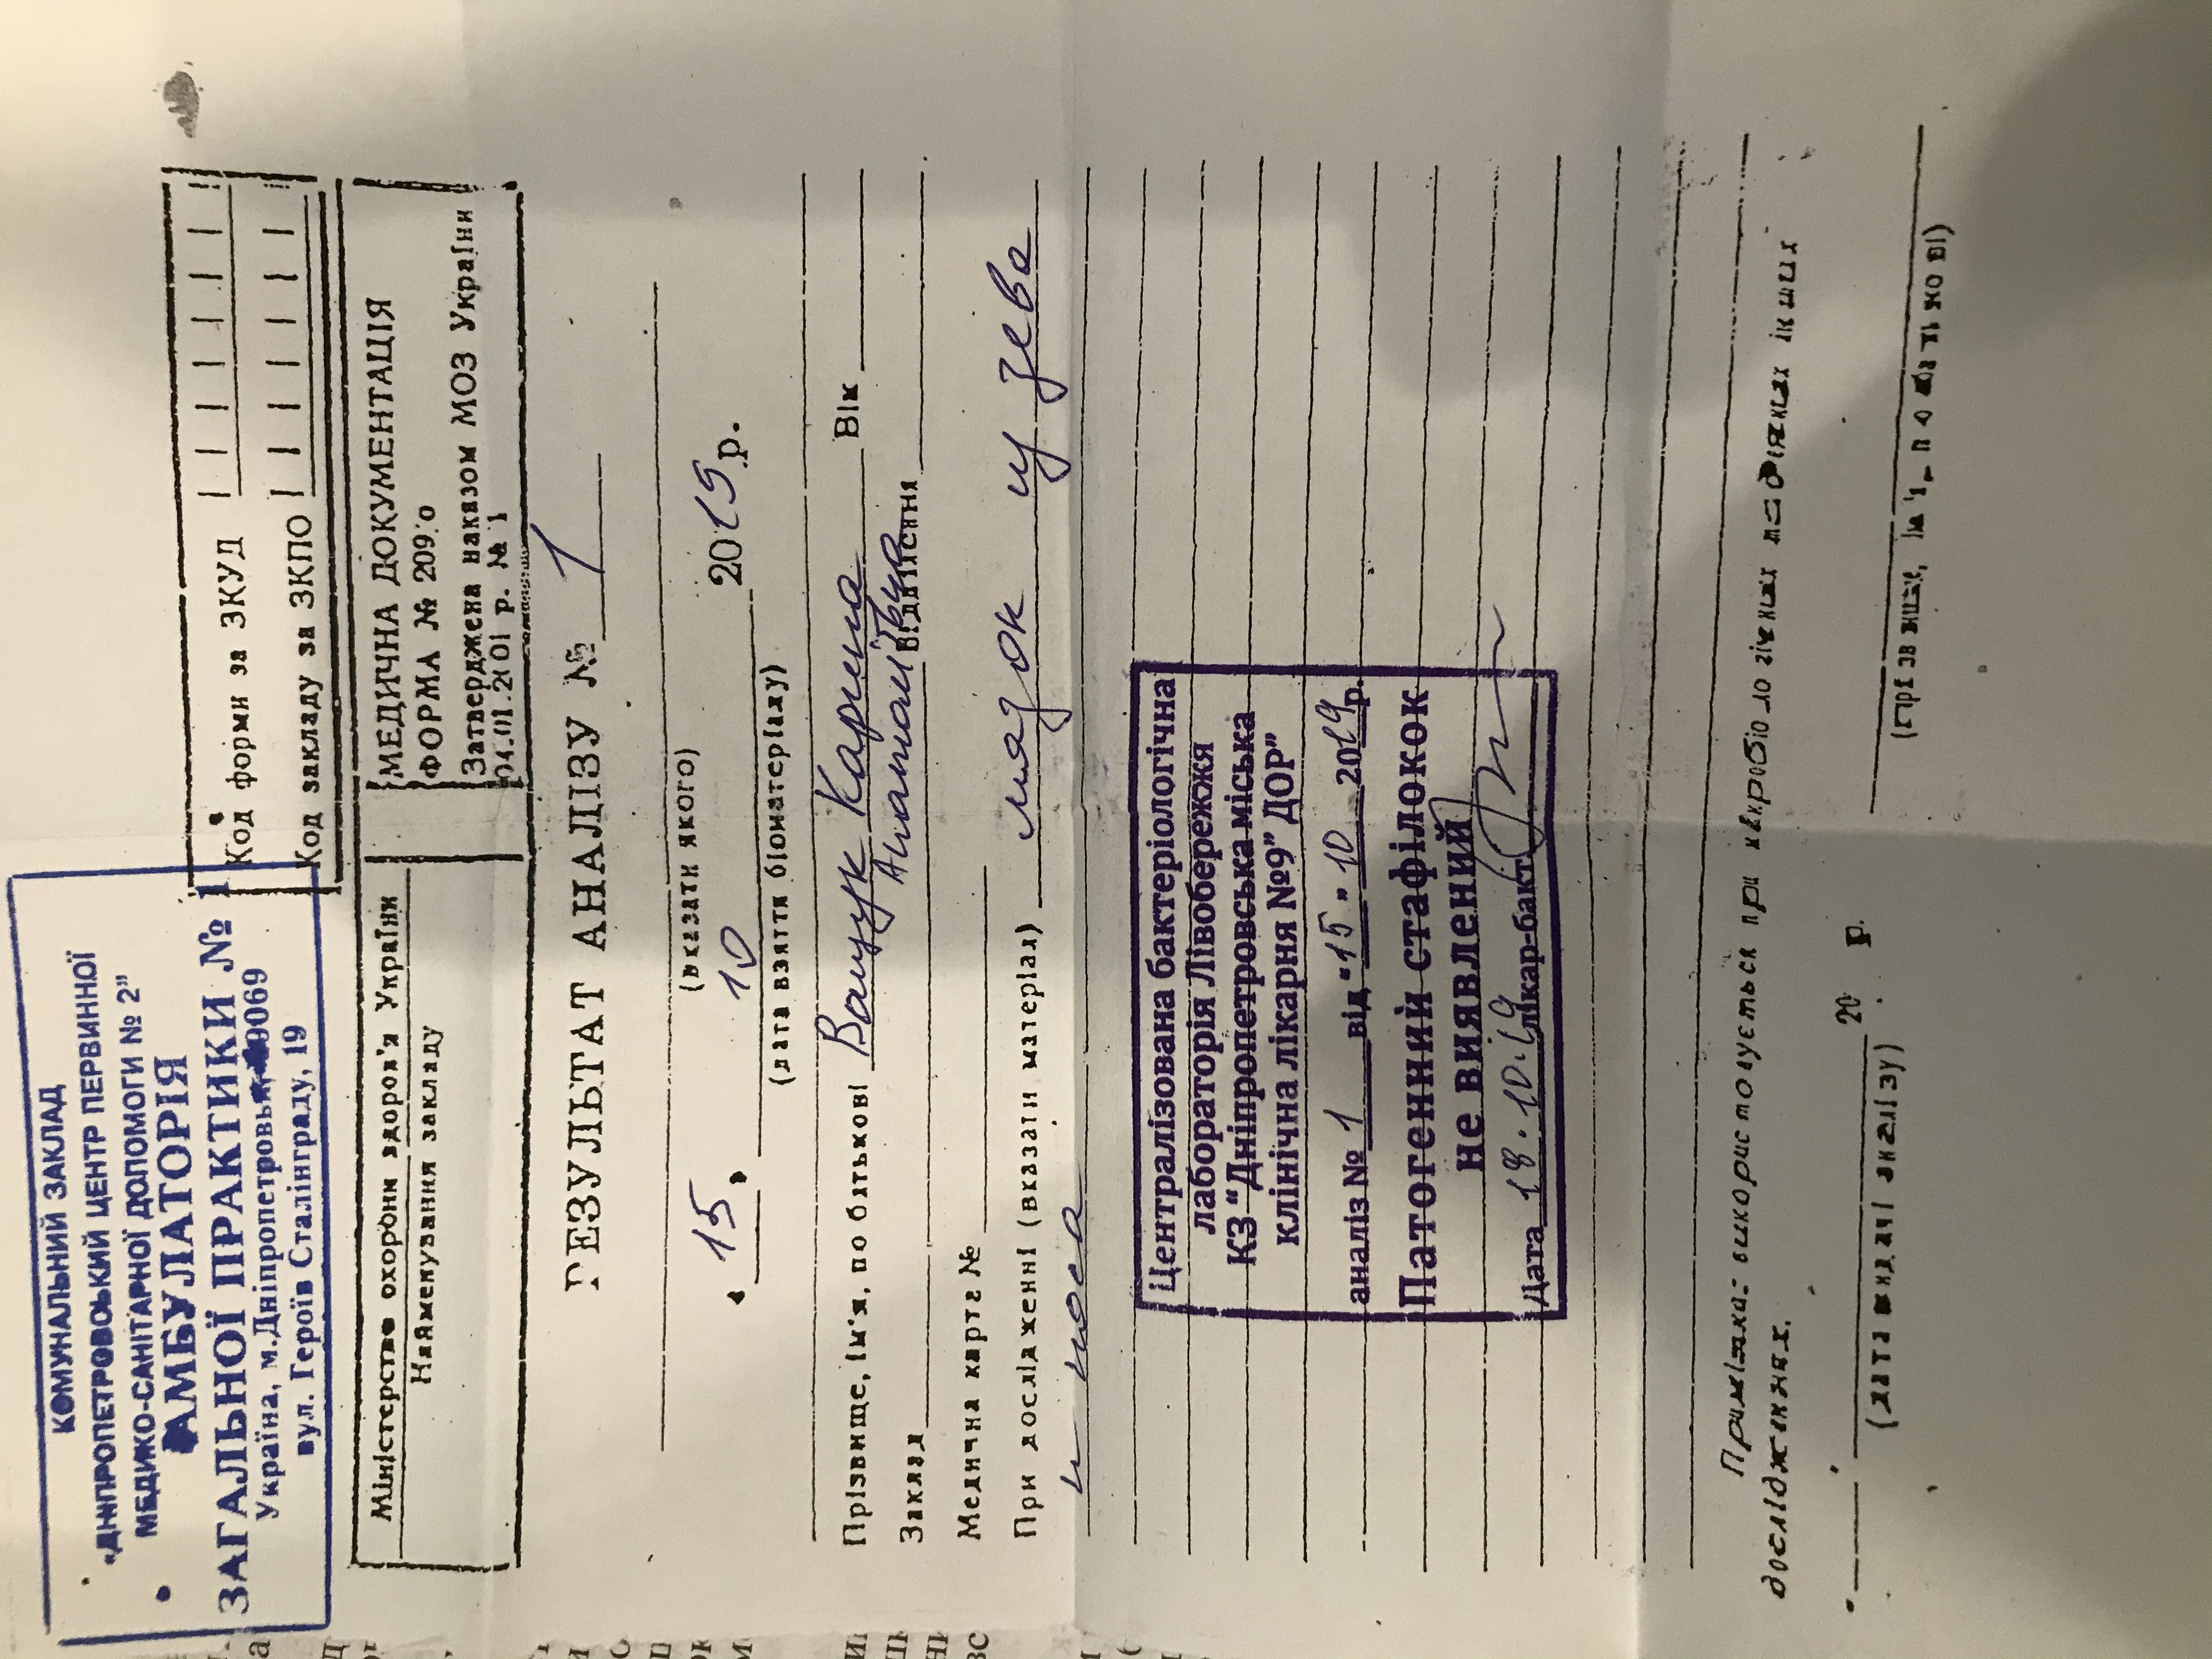 КОМУНАЛЬНИЙ ЗАКЛАД
«ДНІПРОПЕТРОВСЬКИЙ ЦЕНТР ПЕРВИННОЇ
МЕДИКО-САНІТАРНОЇ ДОПОМОГИ № 2”
АМБУЛАТОРІЯ
ЗАГАЛЬНОЇ ПРАКТИКИ № 1
Україна, м.Дніпропетровськ, 49069
вул. Героїв Сталінграду, 19
Код форми за ЗКУД
Код закладу за ЗКПО
Міністерство охорони здоров'я України
Найменування закладу
МЕДИЧНА ДОКУМЕНТАЦІЯ
ФОРМА № 209/о
Затверджена наказом МОЗ України
04.01.2001 р. № 1
РЕЗУЛЬТАТ АНАЛІЗУ № 1
(вказати якого)
"15" 10 2019 р.
(дата взяття біоматеріалу)
Прізвище, ім'я, по батькові Ващук Карина Вік
Анатоліївна
Заклад Відділення
Медична карта №
При дослідженні (вказати матеріал) мазок из зева
и носа
Централізована бактеріологічна
лабораторія Лівобережжя
КЗ “Дніпропетровська міська
клінічна лікарня №9” ДОР”
аналіз № 1 від “15” 10 2019р.
Патогенний стафілокок
не виявлений
Дата 18.10.19 лікар-бакт.
Примітка: використовується при мікробіологічних та деяких інших
дослідженнях.
20 р.
(дата видачі аналізу)
(прізвище, ім'я, по батькові)